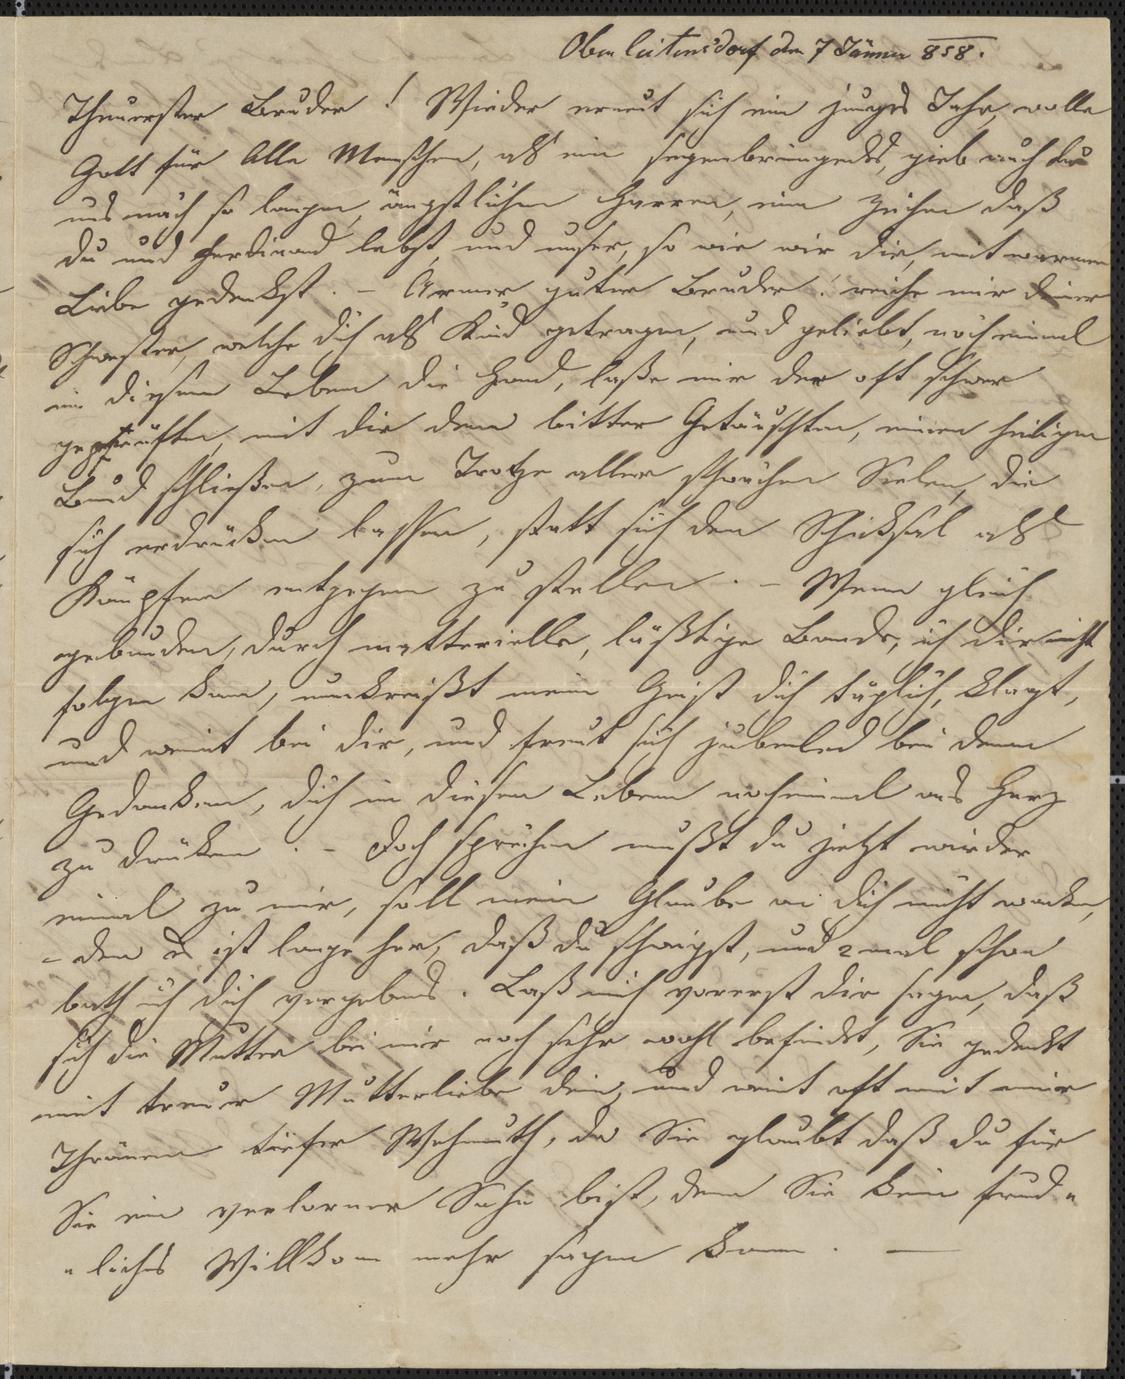 Oberleitensdorf den 7 Jänner 858.
Theuerster Bruder! Wieder erneut sich ein junges Jahr, wolle
Gott für Alle Menschen, als ein segenbringendes, gieb auch du
uns nach so langen, ängstlichen Harren, ein Zeichen daß
du und Ferdinand lebst, und unser, so wie wir dir, mit warmen
Liebe gedenkst. – Armer guter Bruder! reiche mir deiner
Schwester, welche dich als Kind getragen, und geliebt, noch einmal
in diesem Leben die Hand, laße mir der oft schwer
geprüften, mit dir dem bitter Getäuschten, einen heiligen
Bund schließen, zum Trotze aller schwachen Seelen, die
sich erdrücken lassen, statt sich den Schiksal als
Kämpfer entgegen zu stellen. – Wenn gleich
gebunden, durch matterielle, läßtige Bande, ich dir nicht
folgen kann, umkreißt mein Geist dich täglich, klagt,
und weint bei dir, und freut sich jubelnd bei dem
Gedanken, dich in diesen Leben nocheinmal ans Herz
zu drüken. – Doch sprechen mußt du jetzt wieder
einmal zu mir, soll mein Glaube an dich nicht wanken,
– den es ist lange her, daß du schweigst, und 2 mal schon
bath ich dich vergebens. Laß mich vorerst dir sagen, daß
sich die Mutter bei mir noch sehr wohl befindet, Sie gedenkt
mit treuer Mutterliebe dein, und weint oft mit mir
Thränen tiefer Wehmuth, da Sie glaubt daß du für
Sie ein verlorner Sohn bist, dem Sie kein freud„
„liches Willkom mehr sagen kann. —